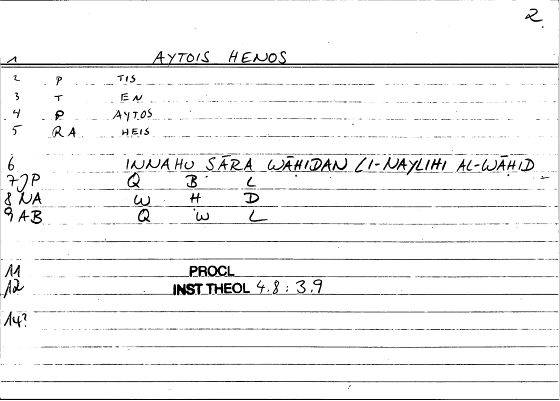 2.
1 AYTOIS HENOS
2 P TIS
3 T EN
4 P AYTOS
5 RA HEIS
6 INNAHU SĀRA WĀHIDAN LI-NAYLIHI AL-WĀHID
7 JP Q B L
8 NA W H D
9 AB Q W L
11 PROCL
12 INST THEOL 4.8 : 3.9
14?